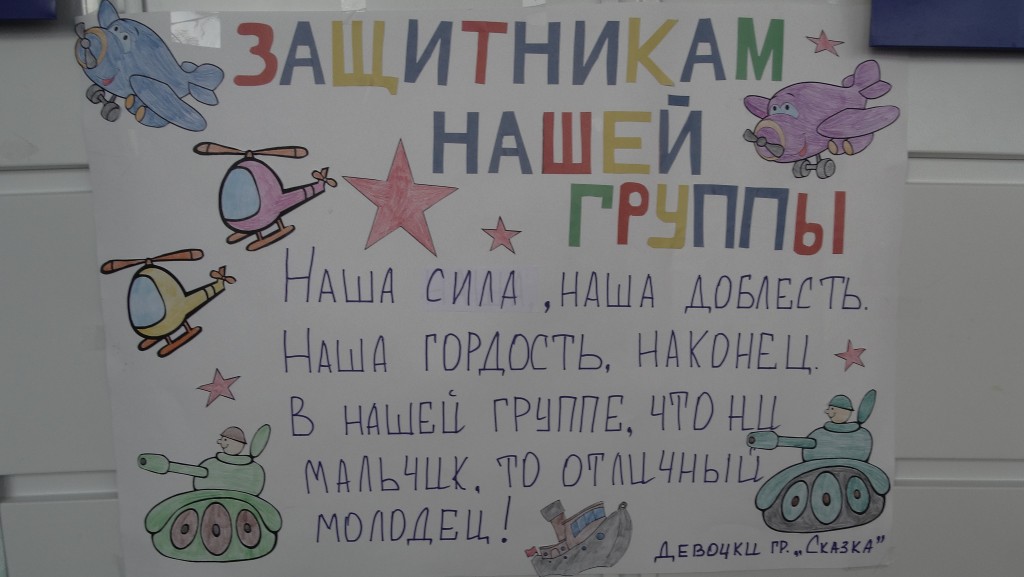 ЗАЩИТНИКАМ
НАШЕЙ
ГРУППЫ
НАША СИЛА, НАША ДОБЛЕСТЬ.
НАША ГОРДОСТЬ, НАКОНЕЦ.
В НАШЕЙ ГРУППЕ, ЧТО НИ
МАЛЬЧИК, ТО ОТЛИЧНЫЙ
МОЛОДЕЦ!
ДЕВОЧКИ ГР. „СКАЗКА"